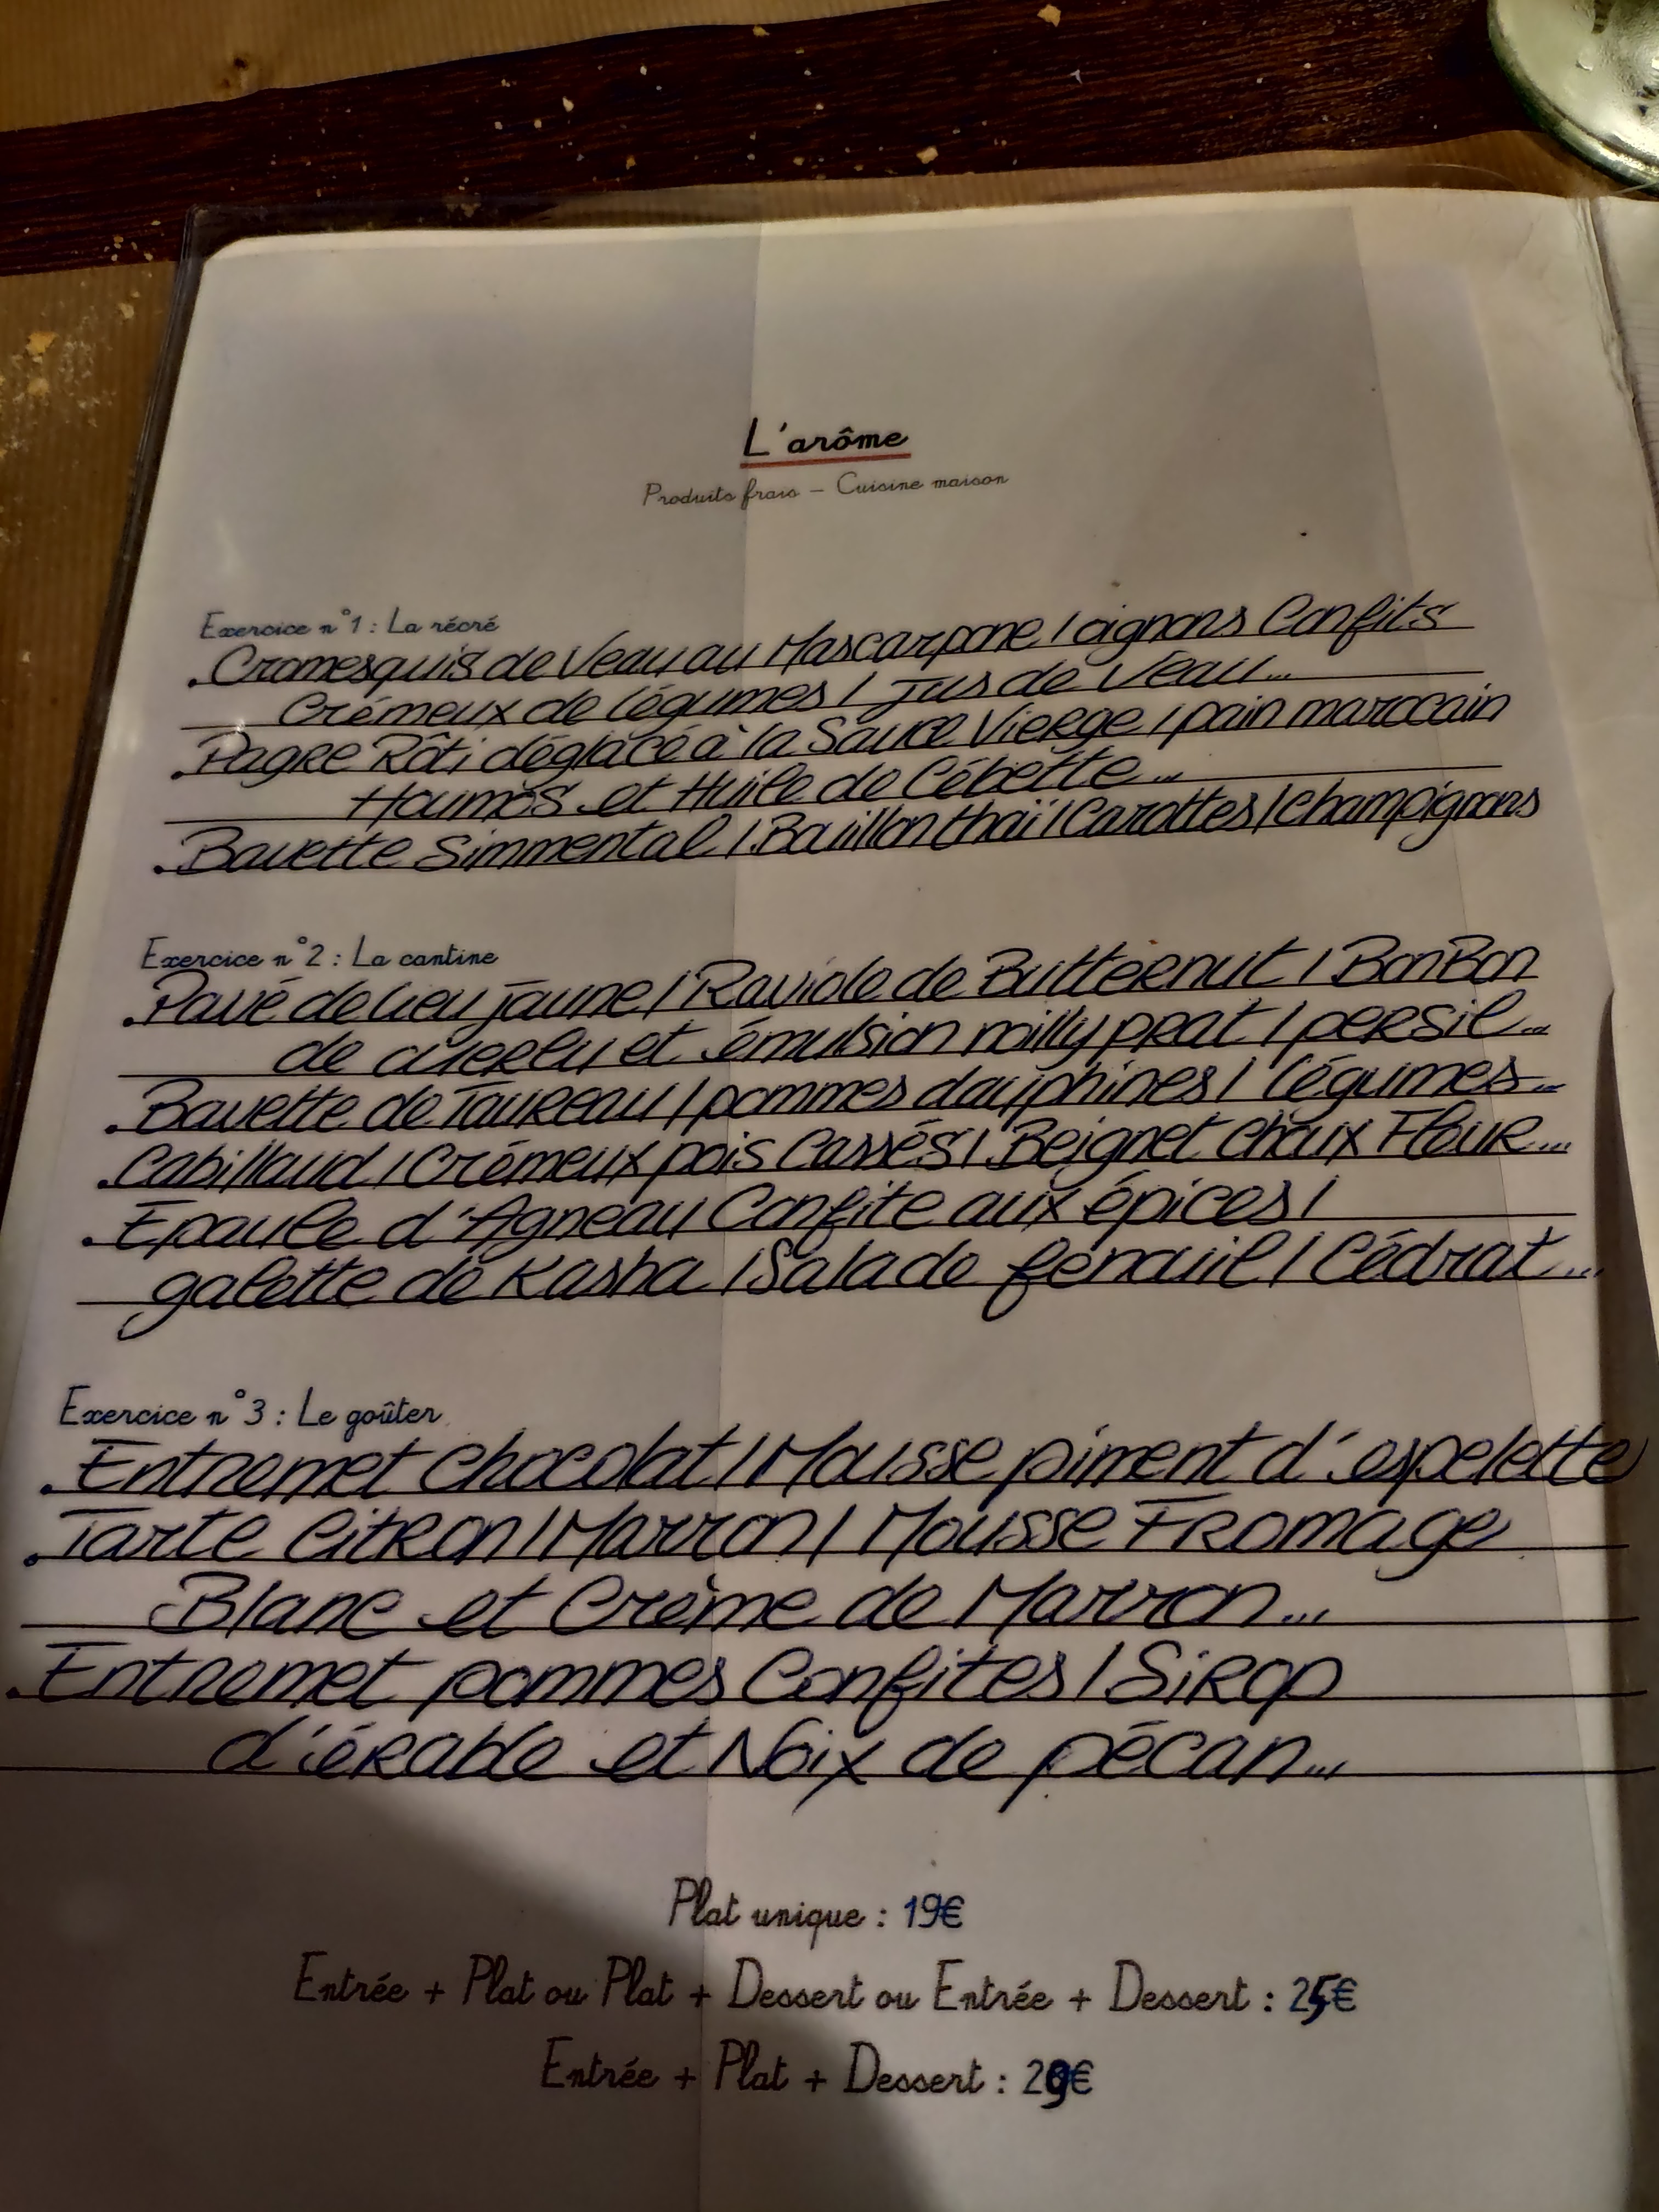 L'arôme
Produits frais – Cuisine maison
Exercice n°1 : La récré
. Cromesquis de Veau au Mascarpone / oignons Confits
Crémeux de légumes / jus de Veau...
. Pagre Rôti déglacé à la Sauce Vierge / pain marocain
Houmos et Huile de Cébette...
. Bavette Simmental / Bouillon thaï / Carottes / champignons
Exercice n°2 : La cantine
. Pavé de lieu jaune / Raviole de Butternut / BonBon
de et émulsion noilly prat / persil...
. Bavette de Taureau / pommes dauphines / légumes...
. Cabillaud / Crémeux pois Cassés / Beignet choux Fleur...
. Epaule d'Agneau Confite aux épices /
galette de Kasha / Salade fenouil / Cédrat...
Exercice n°3 : Le goûter
. Entremet chocolat / Mousse piment d'espelette
. Tarte CitRon / Marron / Mousse FRomage
Blanc et Crème de Marron...
. Entremet pommes Confites / SiRop
d'éRable et Noix de pécan...
Plat unique : 19€
Entrée + Plat ou Plat + Dessert ou Entrée + Dessert : 25€
Entrée + Plat + Dessert : 29€